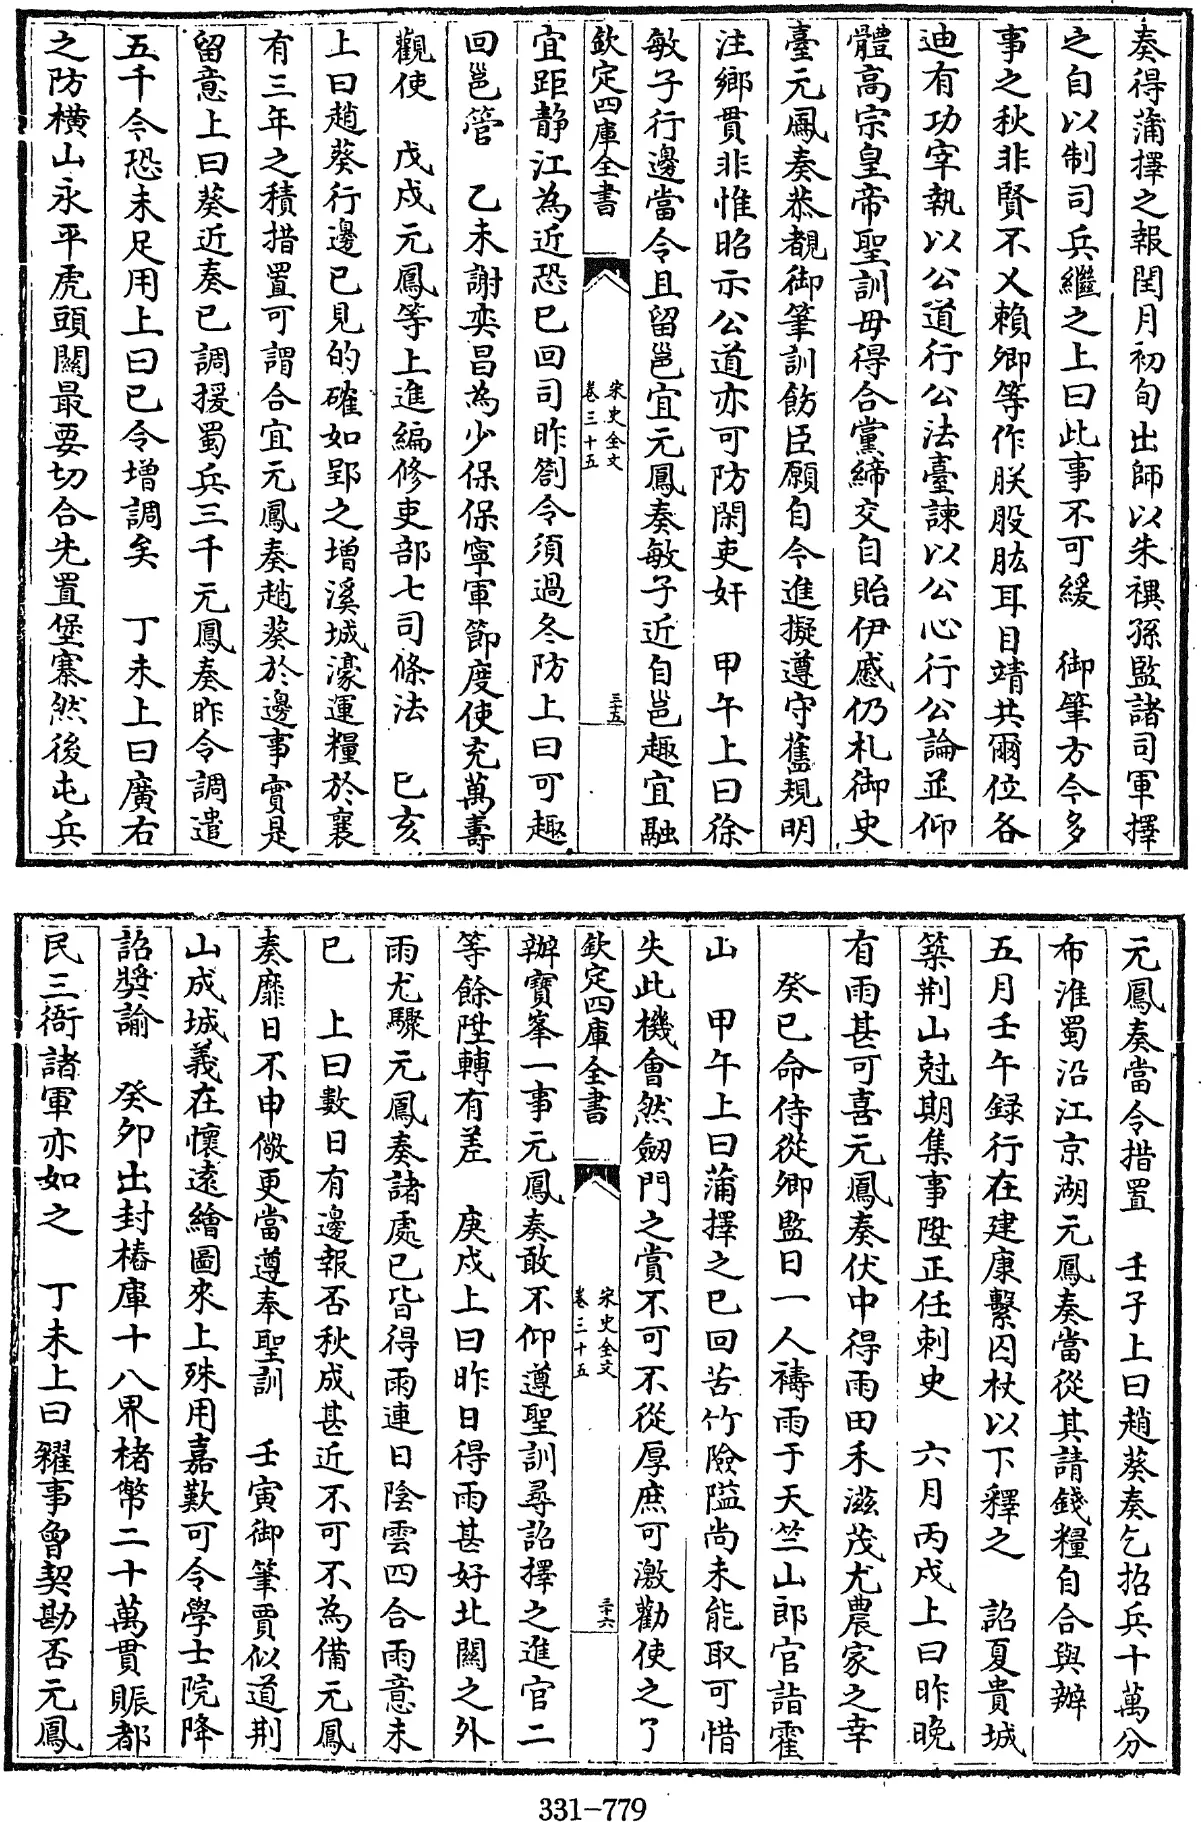 奏得蒲擇之報閏月初旬出師以朱禩孫監諸司軍擇
之自以制司兵繼之上曰此事不可緩　御筆方今多
事之秋非賢不乂賴卿等作朕股肱耳目靖共爾位各
迪有功宰執以公道行公法臺諫以公心行公論並仰
體高宗皇帝聖訓毋得合黨締交自貽伊慼仍札御史
臺元鳳奏恭覩御筆訓飭臣願自今進擬遵守舊規明
注鄉貫非惟昭示公道亦可防閑吏奸　甲午上曰徐
敏子行邊當令且留邕宜元鳳奏敏子近自邕趣宜融
欽定四庫全書
宋史全文
卷三十五
三十五
宜距靜江為近恐已回司昨劄令須過冬防上曰可趣
回邕管　乙未謝奕昌為少保保寧軍節度使充萬壽
觀使　戊戌元鳳等上進編修吏部七司條法　己亥
上曰趙葵行邊已見的確如郢之增溪城濠運糧於襄
有三年之積措置可謂合宜元鳳奏趙葵於邊事實是
留意上曰葵近奏已調援蜀兵三千元鳳奏昨令調遣
五千今恐未足用上曰已令增調矣　丁未上曰廣右
之防橫山永平虎頭關最要切合先置堡寨然後屯兵
元鳳奏當令措置　壬子上曰趙葵奏乞招兵十萬分
布淮蜀沿江京湖元鳳奏當從其請錢糧自合與辦
五月壬午録行在建康繫囚杖以下釋之　詔夏貴城
築荆山尅期集事陞正任刺史　六月丙戌上曰昨晚
有雨甚可喜元鳳奏伏中得雨田禾滋茂尤農家之幸
癸巳命侍從卿監日一人禱雨于天竺山郎官詣霍
山　甲午上曰蒲擇之已回苦竹險隘尚未能取可惜
失此機會然劒門之賞不可不從厚庶可激勸使之了
欽定四庫全書
宋史全文
卷三十五
三十六
辦寶峯一事元鳳奏敢不仰遵聖訓尋詔擇之進官二
等餘陞轉有差　庚戌上曰昨日得雨甚好北關之外
雨尤驟元鳳奏諸處已皆得雨連日陰雲四合雨意未
已　上曰數日有邊報否秋成甚近不可不為備元鳳
奏靡日不申儆更當遵奉聖訓　壬寅御筆賈似道荆
山成城義在懷遠繪圖來上殊用嘉歎可令學士院降
詔奬諭　癸卯出封樁庫十八界楮幣二十萬貫賑都
民三衙諸軍亦如之　丁未上曰糴事曾契勘否元鳳
331-779